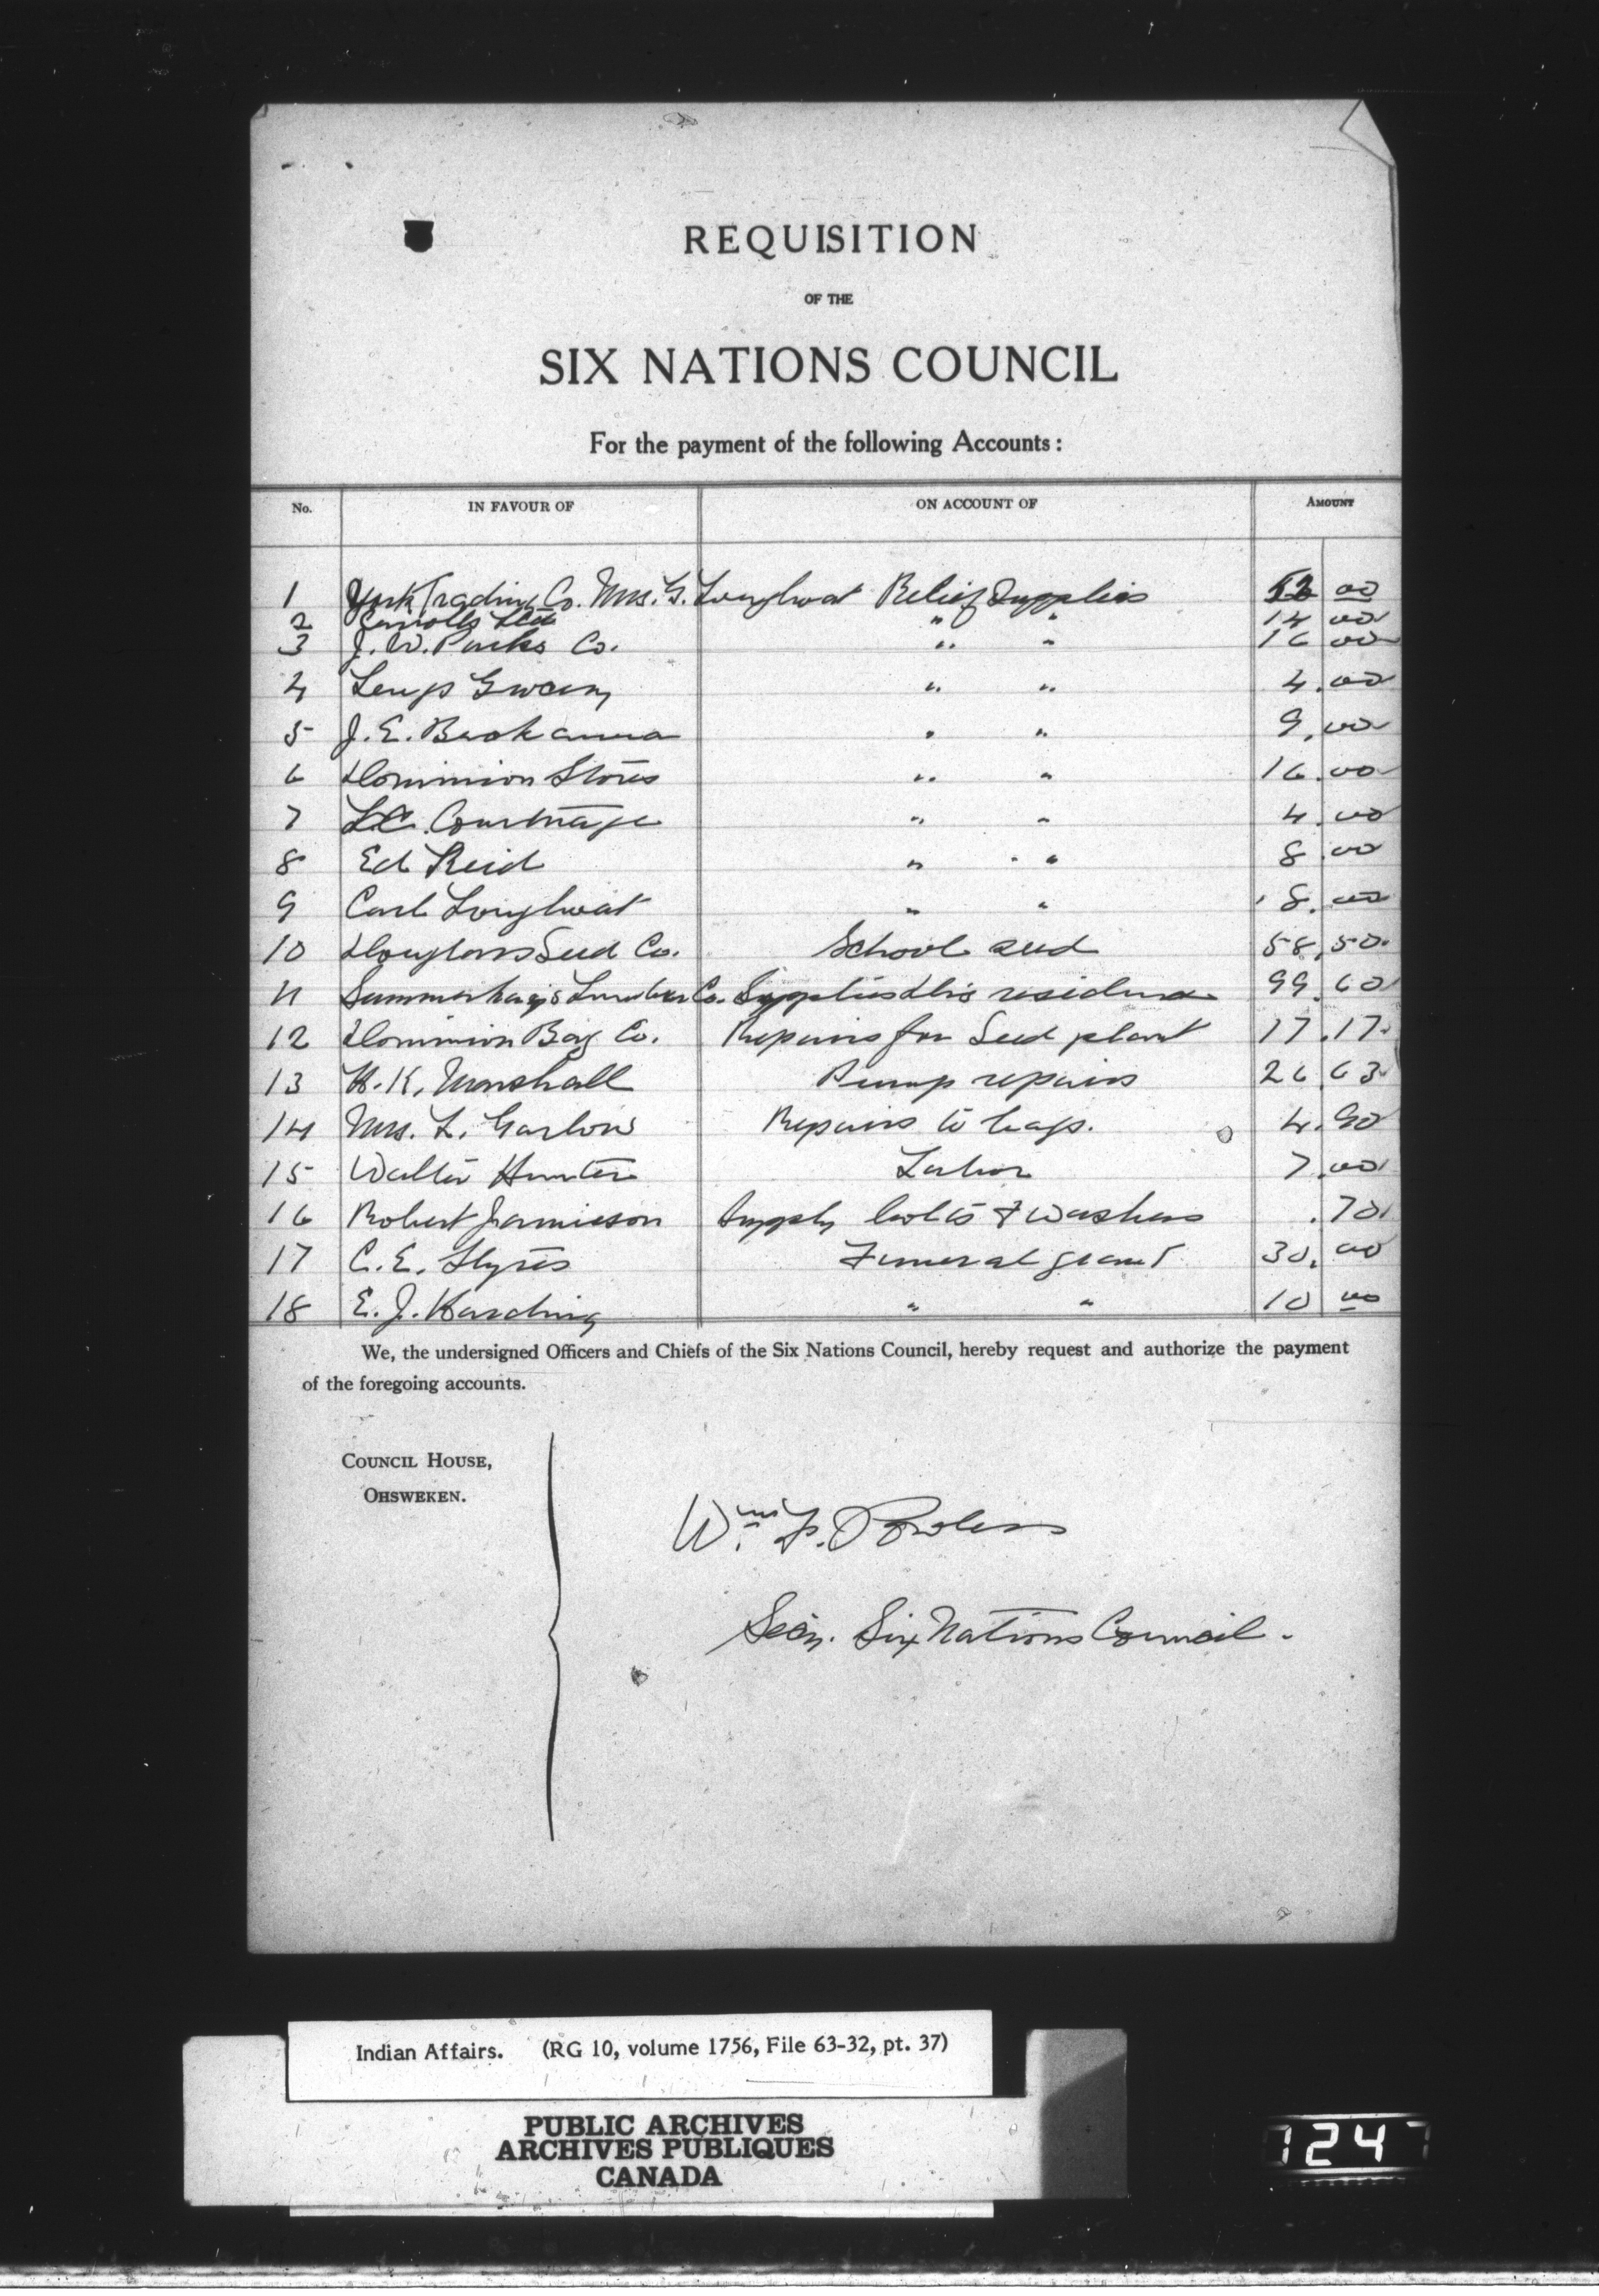 REQUISITION
OF THE
SIX NATIONS COUNCIL
For the payment of the following Accounts:
No. IN FAVOUR OF ON ACCOUNT OF AMOUNT
1 York Trading Co. Mrs. G. Longboat Relief Supplies 52 00
2 Carrolls Ltd " " 14 00
3 J. W. Parks Co. " " 16 00
4 " " 4.00
5 J. E. " " 9.00
6 Dominion Stores " " 16.00
7 " " 4.00
8 Ed Reid " " 8.00
9 Carl Longboat " " 8.00
10 Douglass Seed Co. School seed 58.50
11 Lumber Co. Supplies 99.60
12 Dominion Bag Co. Repairs for Seed plant 17.17
13 H. K. Marshall Pump repairs 26.63
14 Mrs. L. Garlow Repairs to bags. 4.90
15 Walter Hunter Labor 7.00
16 Robert Jamieson Supply bolts & washers .70
17 C. E. Styres Funeral grant 30.00
18 E. J. Harding " " 10 00
We, the undersigned Officers and Chiefs of the Six Nations Council, hereby request and authorize the payment
of the foregoing accounts.
COUNCIL HOUSE,
OHSWEKEN.
Wm. F. Powless
Secy. Six Nations Council.
Indian Affairs. (RG 10, volume 1756, File 63-32, pt. 37)
PUBLIC ARCHIVES
ARCHIVES PUBLIQUES
CANADA